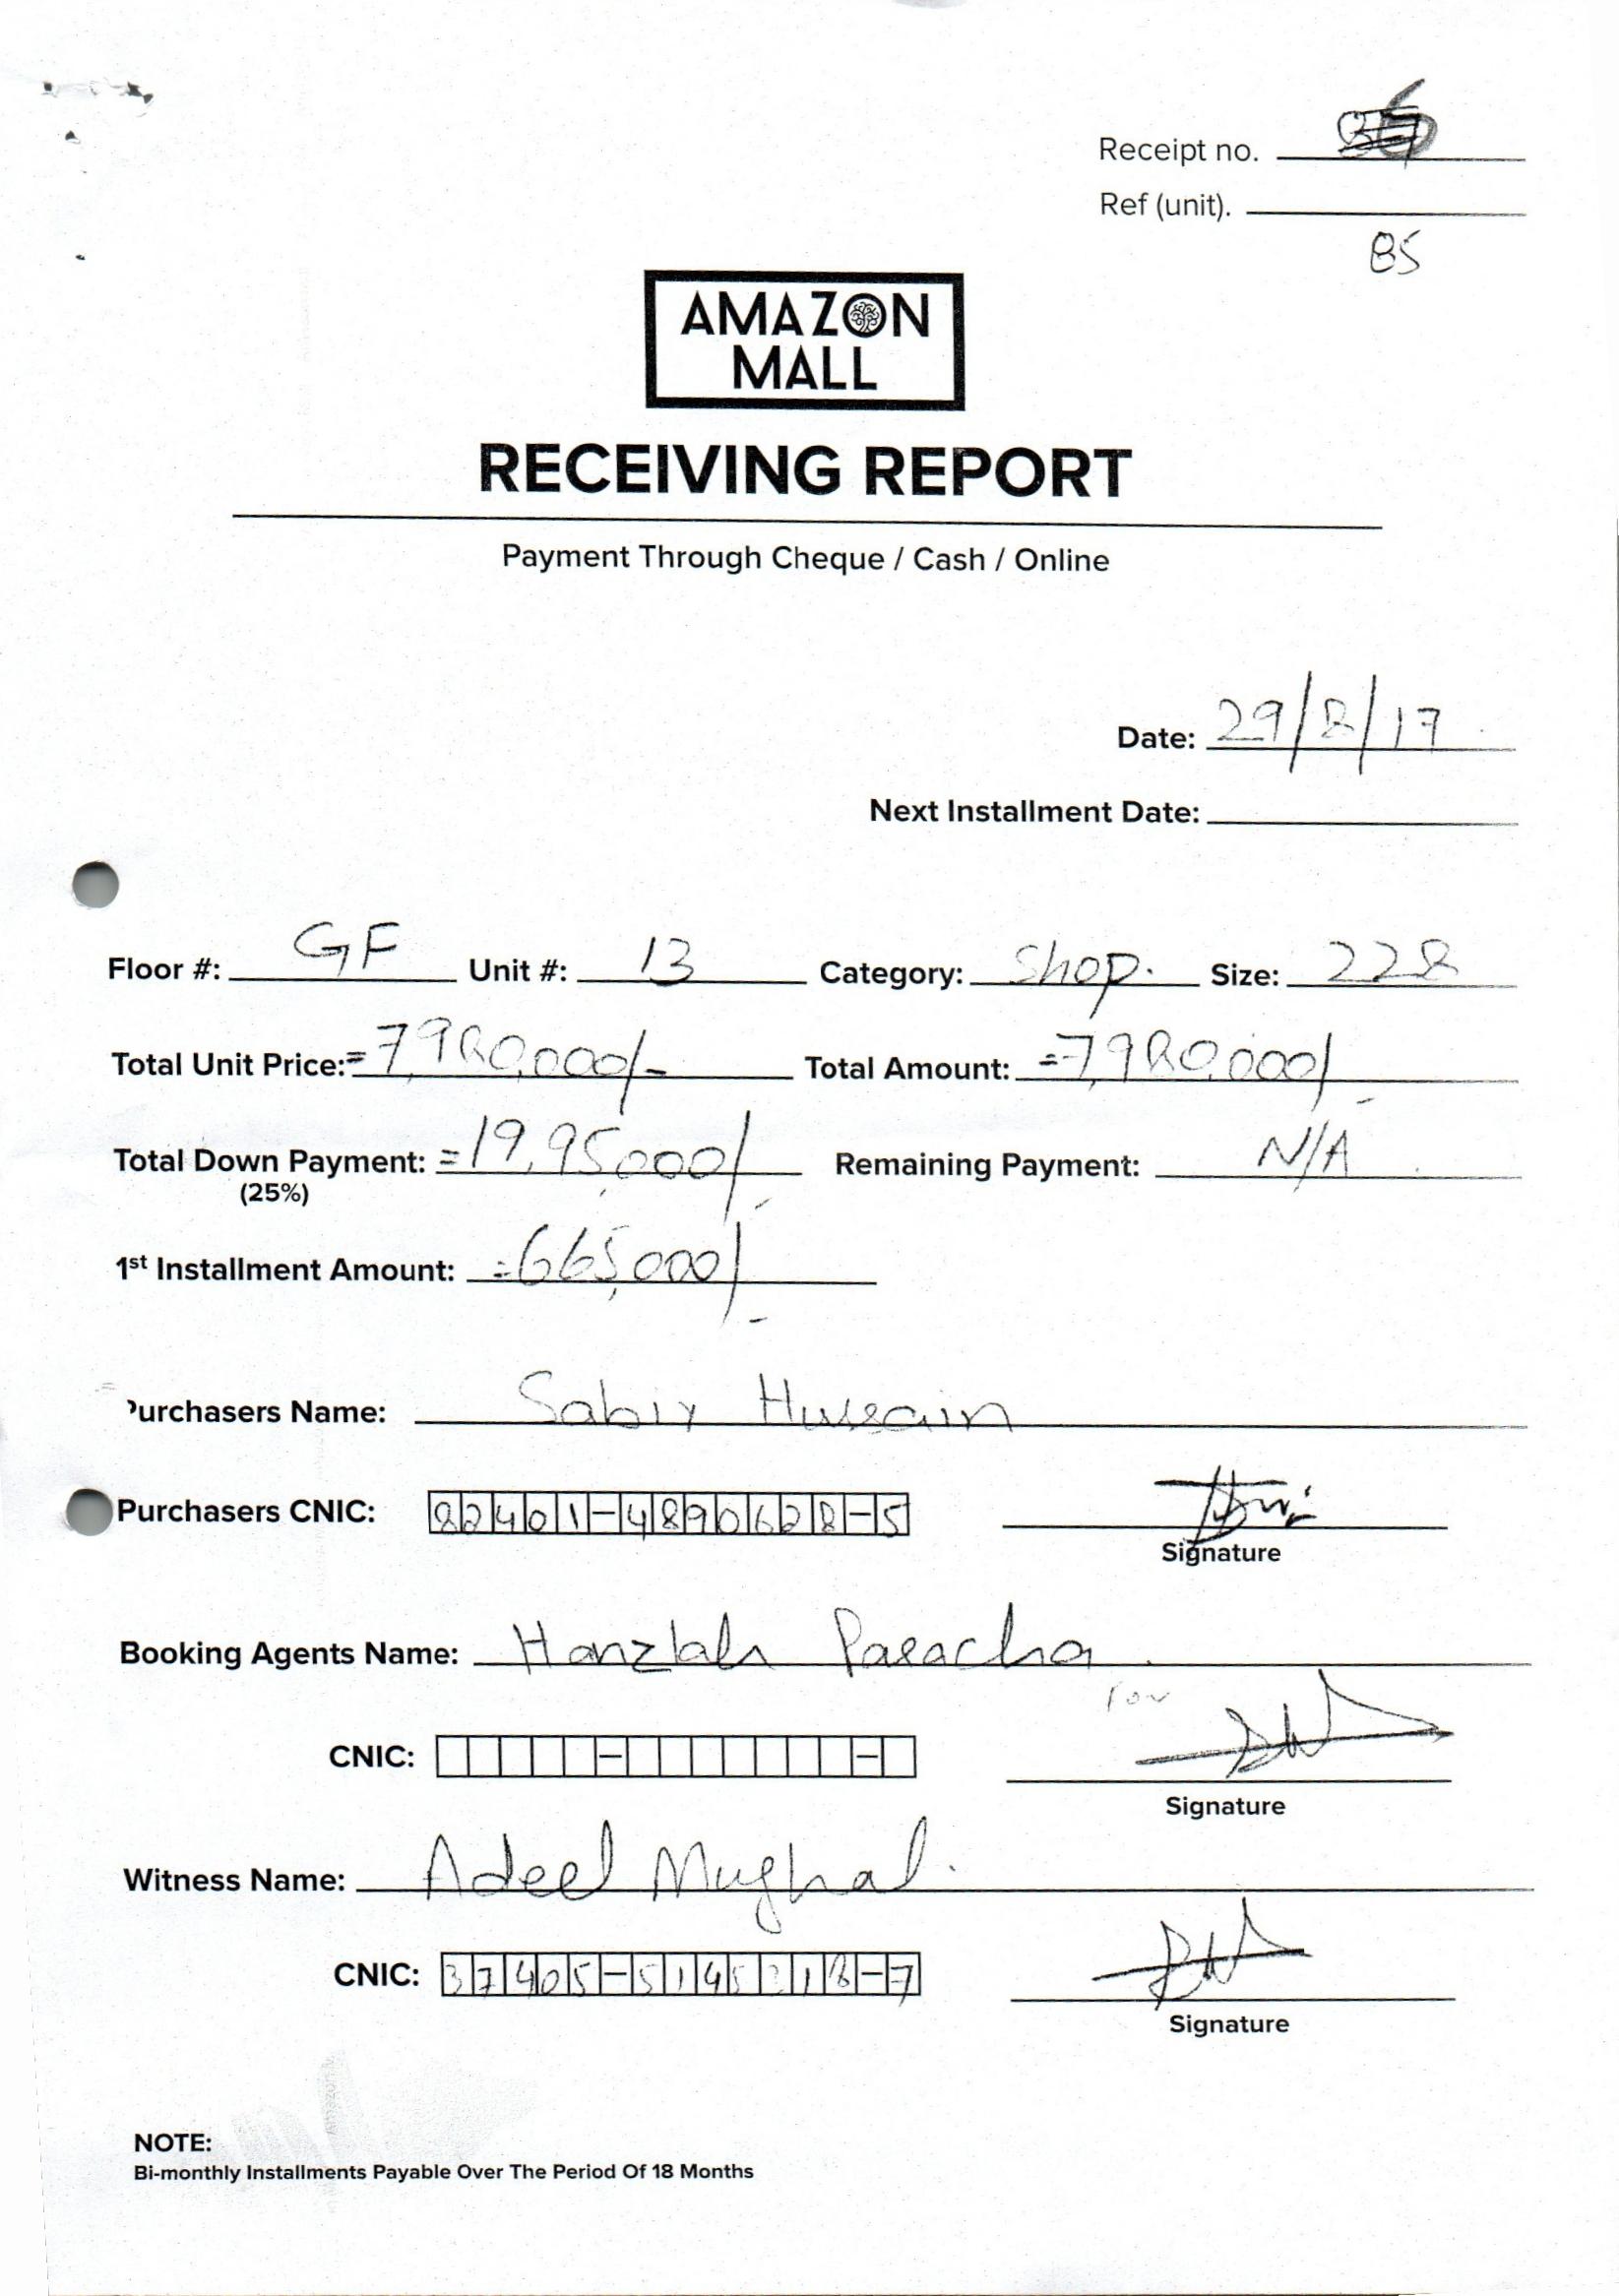 Receipt no.
Ref (unit).
85
AMAZON
MALL
RECEIVING REPORT
Payment Through Cheque / Cash / Online
Date: 29/8/17
Next Installment Date:
Floor #: GF Unit #: 13 Category: Shop. Size: 228
Total Unit Price: =7,980,000/- Total Amount: =7,980,000/-
Total Down Payment: =19,95,000/- Remaining Payment: N/A
(25%)
1st Installment Amount: =665,000/-
Purchasers Name: Sabir Hussain
Purchasers CNIC: 82401-4890628-5
Signature
Booking Agents Name: Hanzlah Paracha
For
CNIC: - -
Signature
Witness Name: Adeel Mughal.
CNIC: 37405-5145218-7
Signature
NOTE:
Bi-monthly Installments Payable Over The Period Of 18 Months